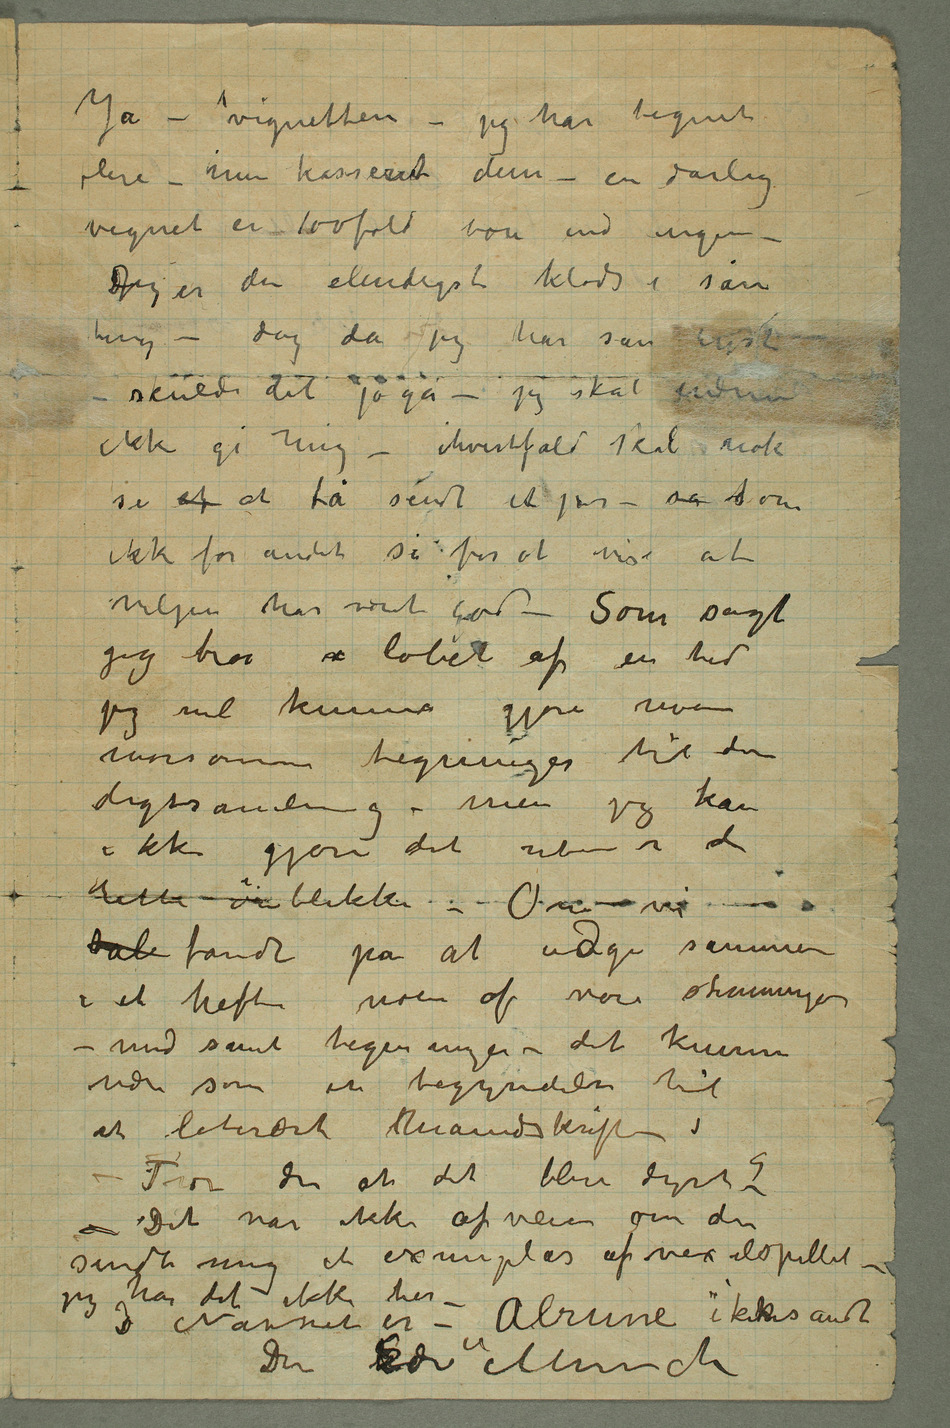 Ja – vignetten – jeg har tegnet
flere – men kasseret dem – en dårlig
vignet er 100fold værre end ingen –
Jeg er den elendigste klods i sån
ting – dog da jeg har sån lyst
– skulde det jo gå – jeg skal endnu
ikke gi mig – ihvertfald skal nok
se af at få sendt et par – så som
ikke for andet så for at vise at
viljen har været god – Som sagt
jeg tror i løbet af en tid
jeg vil kunne gjøre noen
morsomme tegninger til den
digtsamling – men jeg kan
ikke gjøre det uden i de
dette øieblikke – Om vi
tale fandt på at udgi sammen
i et hefte noen af vore stemninger
– med samt tegninger – det kunne
være som en begyndelse til
et literært Maanedskrift
– Tror du at det blir dyrt?
– Det var ikke af veien om du
sendte mig et exemplar af vexelspillet –
jeg har det ikke her –
Navnet er – Alrune ikkesandt
Din Edv Munch